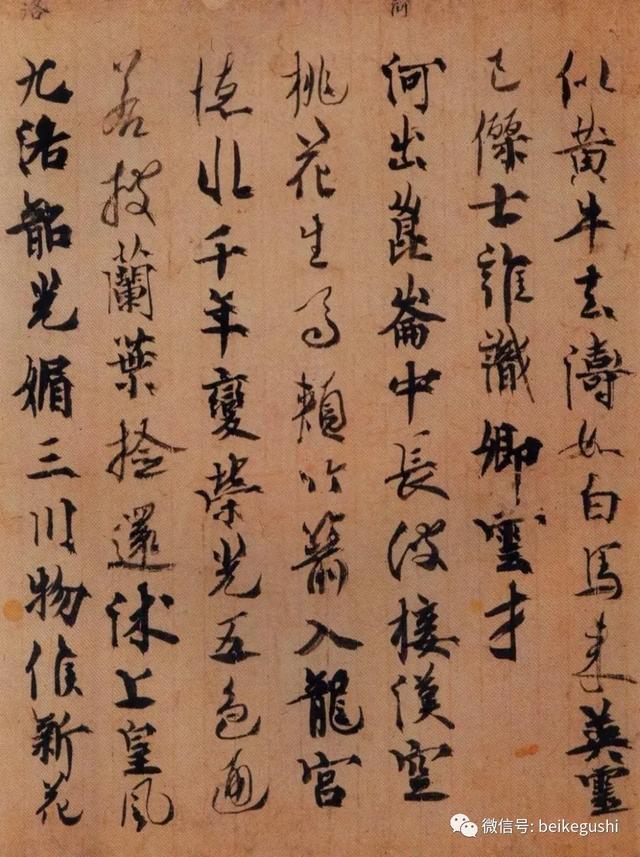 似黄牛去濤如白馬来英靈
已傑士誰識卿雲才
河出崑崙中長波接漢空
桃花生馬頰竹箭入龍宮
德水千年變榮光五色通
若披蘭葉捡還沐上皇風
洛
九洛韶光媚三川物候新花
微信号: beikegushi